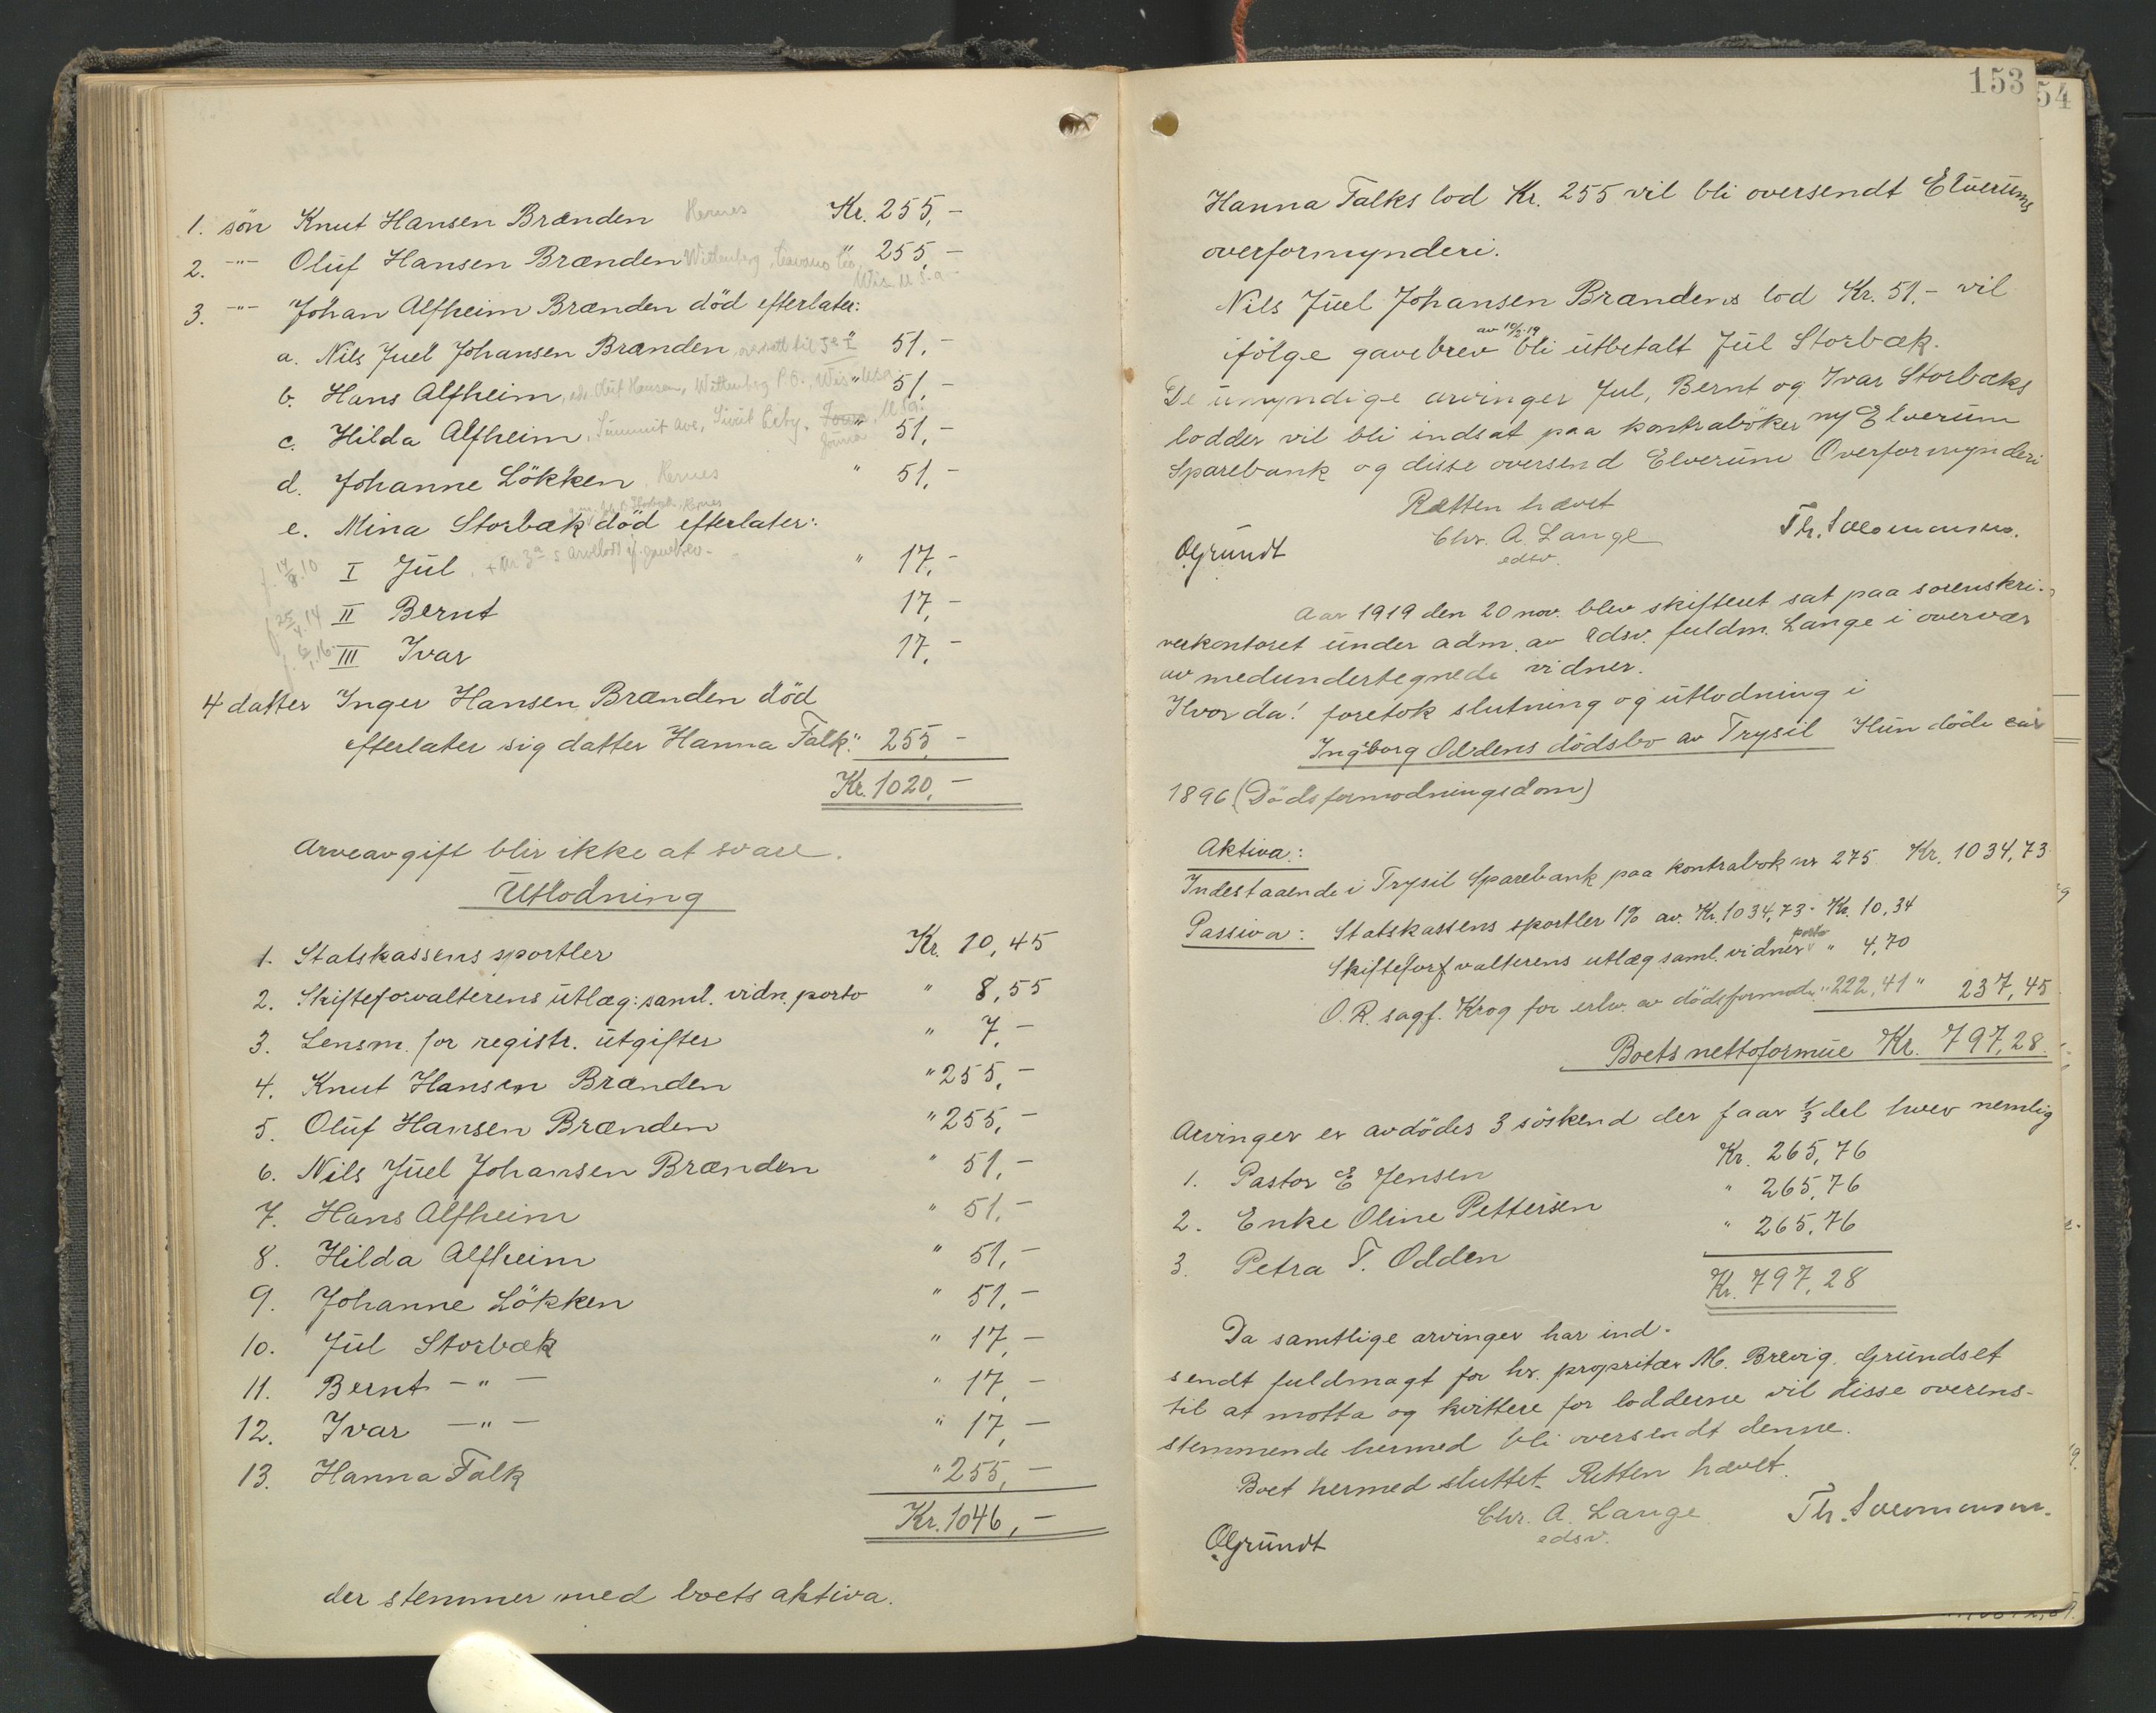 1. sön Knut Hansen Brænden Hernes Kr. 255,-
2. -"- Oluf Hansen Brænden Wittenberg, Co. " 255,-
Wis. U.S.a.
3. -"- Johan Alfheim Brænden död efterlater:
a. Nils Juel Johansen Brænden " 51,-
b. Hans Alfheim, Oluf Hansen, Wittenberg P.O. Wis. Usa " 51,-
c. Hilda Alfheim, Summit Ave, U.Sa. " 51,-
d. Johanne Lökken, Hernes " 51,-
e. Mina Storbæk död efterlater:
f. 14/8.10 I Jul, arvelodd gavebrev. " 17,-
f. 25/4.14 II Bernt 17,-
III Ivar 17,-
4 datter Inger Hansen Brænden död
efterlater sig datter Hanna Falk " 255,-
Kr. 1020,-
Arveavgift blir ikke at svare.
Utlodning
1. Statskassens sportler Kr. 10,45
2. Skifteforvalterens utlæg: saml. vidn. porto " 8,55
3. Lensm. for registr. utgifter " 7,-
4. Knut Hansen Brænden " 255,-
5. Oluf Hansen Brænden " 255,-
6. Nils Juel Johansen Brænden " 51,-
7. Hans Alfheim " 51,-
8. Hilda Alfheim " 51,-
9. Johanne Lökken " 51,-
10. Jul Storbæk " 17,-
11. Bernt -"- " 17,-
12. Ivar -"- " 17,-
13. Hanna Falk " 255,-
Kr. 1046,-
der stemmer med boets aktiva.
153
54
Hanna Falks lod Kr. 255 vil bli oversendt Elverums
overformynderi.
Nils Juel Johansen Brændens lod Kr. 51,- vil
ifölge gavebrev av 10/2-19 bli utbetalt Jul Storbæk.
De umyndige arvinger Jul, Bernt og Ivar Storbæks
lodder vil bli indsat paa kontraböker ny Elverum
Sparebank og disse oversend Elverum Overformynderi
Rætten hævet
OGrundt Chr. A. Lange Th. Salomonsen.
edsv.
Aar 1919 den 20 nov. blev skifteret sat paa sorenskri-
verkontoret under adm. av edsv. fuldm. Lange i overvær
av medundertegnede vidner.
Hvorda! foretok slutning og utlodning i
Ingeborg Oddens dödsbo av Trysil Hun döde aar
1896 (Dödsformodningsdom)
Aktiva:
Indestaaende i Trysil Sparebank paa kontrabok nr 275 Kr. 1034,73
Passiva: Statskassens sportler 1% av Kr. 1034,73 - Kr. 10,34
Skifteforvalterens utlæg saml. vidner porto " 4,70
O.R. sagf. Krog for erhv. av dödsformodn. " 222,41 " 237,45
Boets nettoformue Kr. 797,28
Arvinger er avdödes 3 söskend der faar 1/3 del hver nemlig
1. Pastor E Jensen Kr. 265,76
2. Enke Oline Pettersen " 265,76
3. Petra T. Odden " 265,76
Kr. 797,28
Da samtlige arvinger har ind-
sendt fuldmagt for hr. propritær M. Brevig. Grundset
til at motta og kvittere for lodderne vil disse overens-
stemmende hermed bli oversendt denne.
Boet hermed sluttet. Retten hævet.
OGrundt Chr. A. Lange Th. Salomonsen.
edsv.